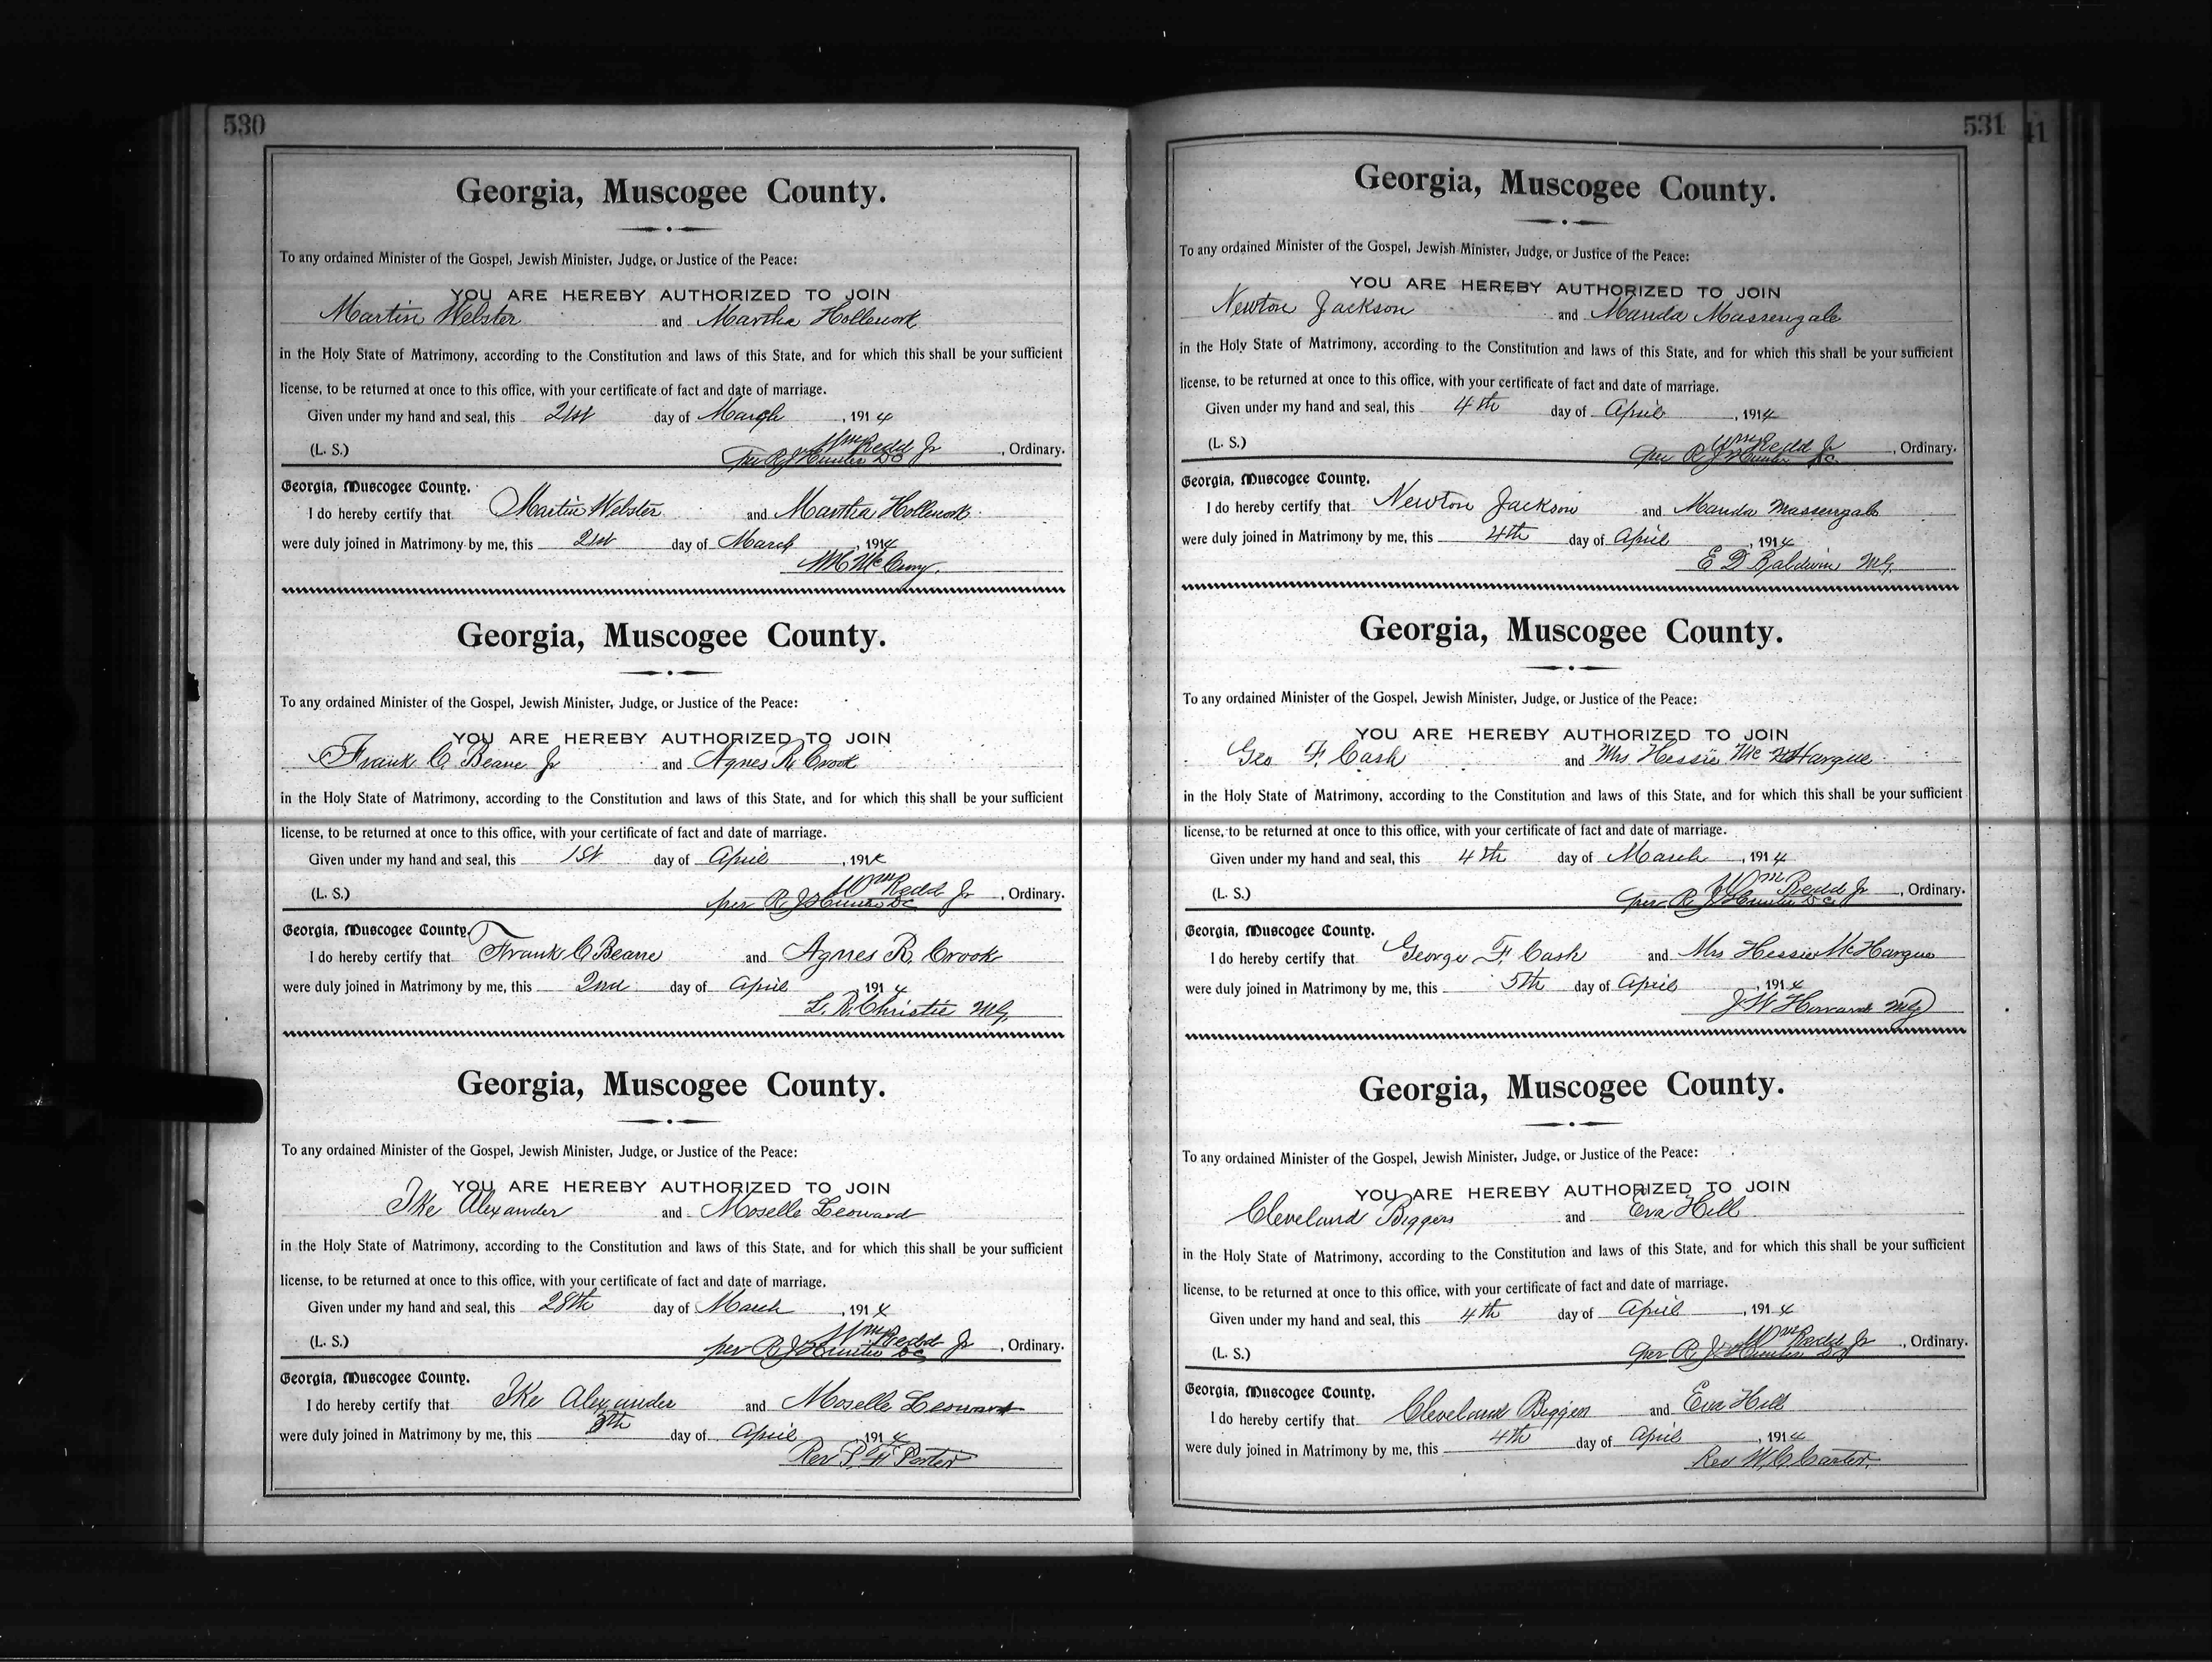 530
Georgia, Muscogee County.
To any ordained Minister of the Gospel, Jewish Minister, Judge, or Justice of the Peace:
YOU ARE HEREBY AUTHORIZED TO JOIN
Martin Webster and Martha
in the Holy State of Matrimony, according to the Constitution and laws of this State, and for which this shall be your sufficient
license, to be returned at once to this office, with your certificate of fact and date of marriage.
Given under my hand and seal, this 21st day of March, 1914
(L. S.) Wm Redd Jr, Ordinary.
per R J Hunter DC
Georgia, Muscogee County.
I do hereby certify that Martin Webster and Martha
were duly joined in Matrimony by me, this 21st day of March, 1914
Georgia, Muscogee County.
To any ordained Minister of the Gospel, Jewish Minister, Judge, or Justice of the Peace:
YOU ARE HEREBY AUTHORIZED TO JOIN
Frank C. Beane Jr and Agnes R. Crook
in the Holy State of Matrimony, according to the Constitution and laws of this State, and for which this shall be your sufficient
license, to be returned at once to this office, with your certificate of fact and date of marriage.
Given under my hand and seal, this 1st day of April, 1914
(L. S.) Wm Redd Jr, Ordinary.
per R J Hunter DC
Georgia, Muscogee County.
I do hereby certify that Frank C Beane and Agnes R. Crook
were duly joined in Matrimony by me, this 2nd day of April, 1914
L. R. Christie MG
Georgia, Muscogee County.
To any ordained Minister of the Gospel, Jewish Minister, Judge, or Justice of the Peace:
YOU ARE HEREBY AUTHORIZED TO JOIN
Ike Alexander and Moselle Leonard
in the Holy State of Matrimony, according to the Constitution and laws of this State, and for which this shall be your sufficient
license, to be returned at once to this office, with your certificate of fact and date of marriage.
Given under my hand and seal, this 28th day of March, 1914
(L. S.) Wm Redd Jr, Ordinary.
per R J Hunter DC
Georgia, Muscogee County.
I do hereby certify that Ike Alexander and Moselle Leonard
were duly joined in Matrimony by me, this day of April, 1914
Rev P. H. Porter
531 41
Georgia, Muscogee County.
To any ordained Minister of the Gospel, Jewish Minister, Judge, or Justice of the Peace:
YOU ARE HEREBY AUTHORIZED TO JOIN
Newton Jackson and Manda Massengale
in the Holy State of Matrimony, according to the Constitution and laws of this State, and for which this shall be your sufficient
license, to be returned at once to this office, with your certificate of fact and date of marriage.
Given under my hand and seal, this 4th day of April, 1914
(L. S.) Wm Redd Jr, Ordinary.
per R J Hunter DC
Georgia, Muscogee County.
I do hereby certify that Newton Jackson and Manda Massengale
were duly joined in Matrimony by me, this 4th day of April, 1914
E D Baldwin MG
Georgia, Muscogee County.
To any ordained Minister of the Gospel, Jewish Minister, Judge, or Justice of the Peace:
YOU ARE HEREBY AUTHORIZED TO JOIN
Geo F. Cash and Mrs Hessie Mc Hargue
in the Holy State of Matrimony, according to the Constitution and laws of this State, and for which this shall be your sufficient
license, to be returned at once to this office, with your certificate of fact and date of marriage.
Given under my hand and seal, this 4th day of March, 1914
(L. S.) Wm Redd Jr, Ordinary.
per R J Hunter DC
Georgia, Muscogee County.
I do hereby certify that George F. Cash and Mrs Hessie McHargue
were duly joined in Matrimony by me, this 5th day of April, 1914
J W Howard MG
Georgia, Muscogee County.
To any ordained Minister of the Gospel, Jewish Minister, Judge, or Justice of the Peace:
YOU ARE HEREBY AUTHORIZED TO JOIN
Cleveland Biggers and Eva Hill
in the Holy State of Matrimony, according to the Constitution and laws of this State, and for which this shall be your sufficient
license, to be returned at once to this office, with your certificate of fact and date of marriage.
Given under my hand and seal, this 4th day of April, 1914
(L. S.) Wm Redd Jr, Ordinary.
per R J Hunter DC
Georgia, Muscogee County.
I do hereby certify that Cleveland Biggers and Eva Hill
were duly joined in Matrimony by me, this 4th day of April, 1914
Rev W. C. Carter.